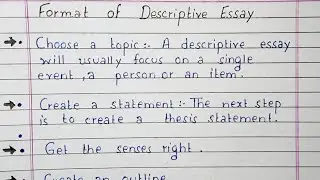 Format of Descriptive Essay
Choose a topic:- A descriptive essay
will usually focus on a single
event, a person or an item.
Create a statement:- The next step
is to create a thesis statement.
Get the senses right.
Create an outline